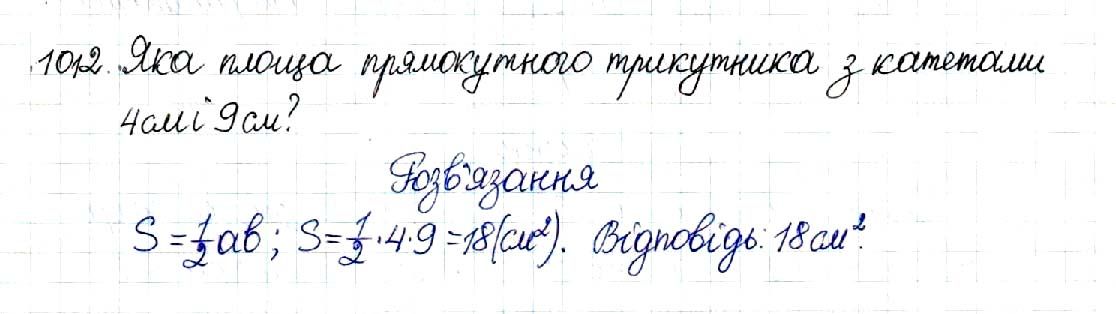 1012. Яка площа прямокутного трикутника з катетами
4см і 9см?
Розв'язання
S = 1/2 ab; S = 1/2 · 4 · 9 = 18 (см²). Відповідь: 18 см².